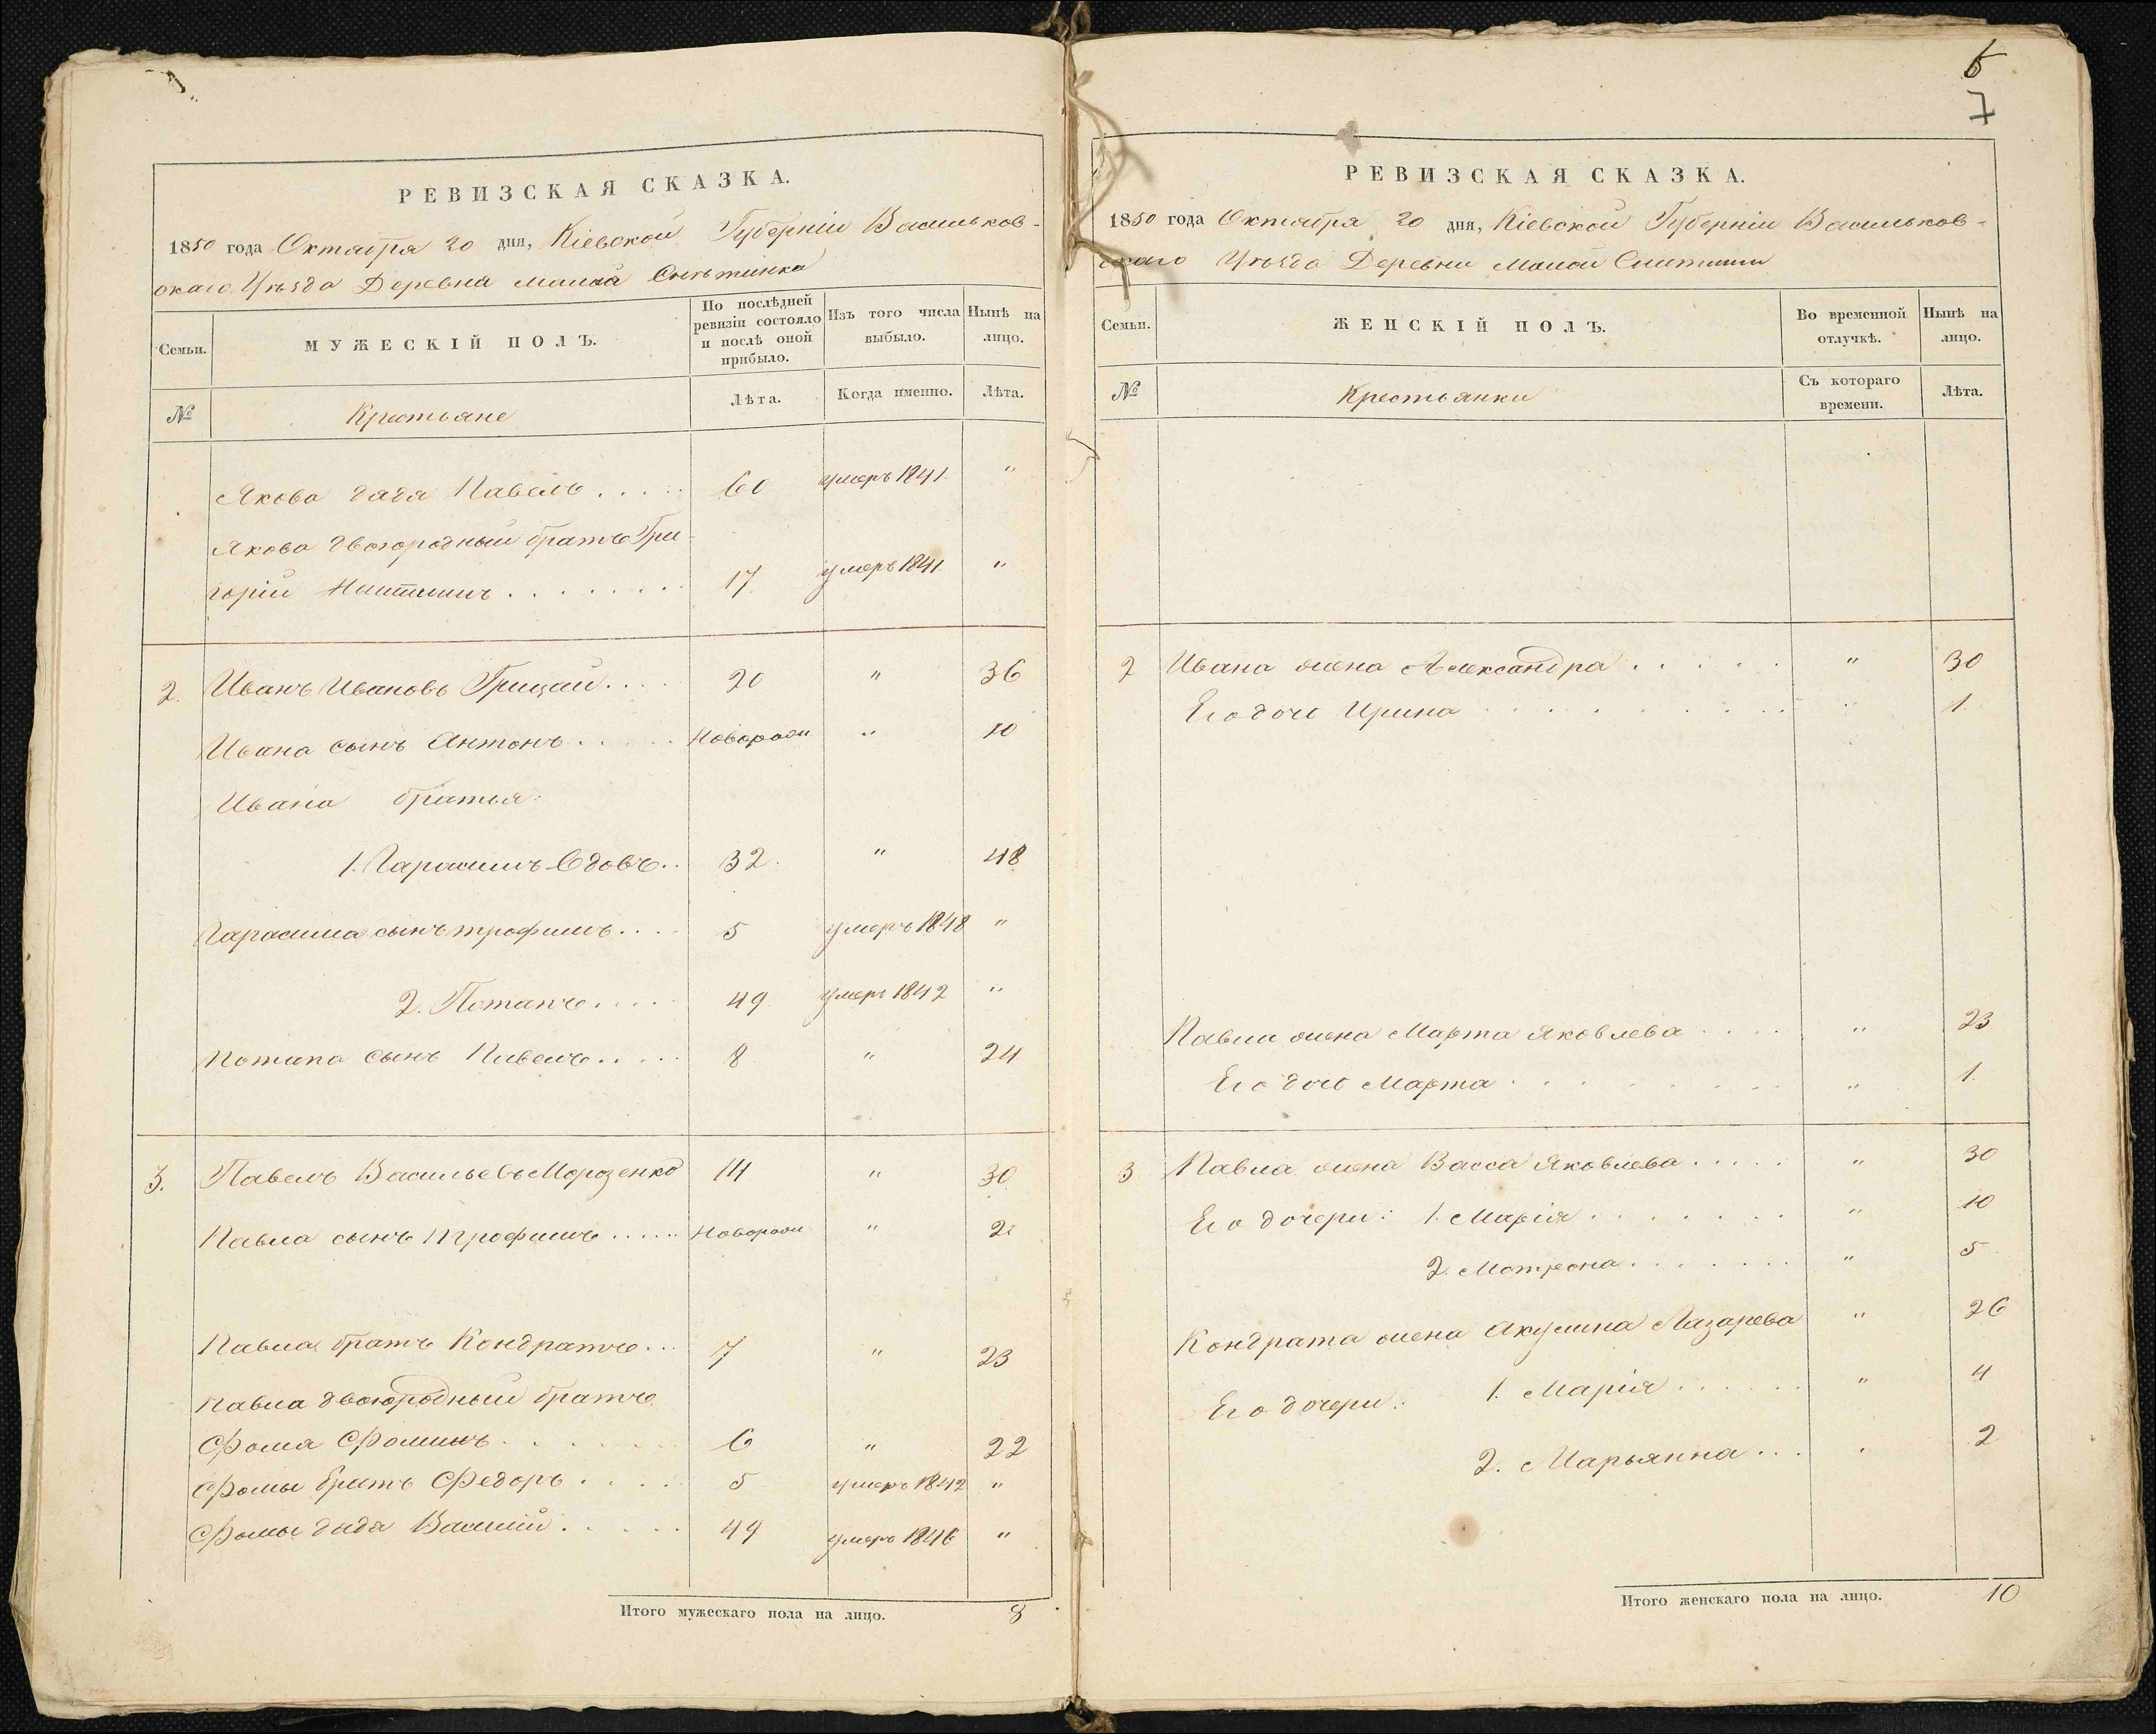 РЕВИЗСКАЯ СКАЗКА.
1850 года Октября 20 дня, Кіевской Губерніи Васильков-
скаго Уѣзда Деревня малая Снѣтинка
Семьи.
МУЖЕСКІЙ ПОЛЪ.
По послѣдней
ревизіи состояло
и послѣ оной
прибыло.
Изъ того числа
выбыло.
Нынѣ на
лицо.
№
Крестьяне
Лѣта.
Когда именно.
Лѣта.
Якова дядя Павелъ ..... 60 умеръ 1841 "
Якова двоюродный братъ Гри
горій ........ 17 умеръ 1841 "
2. Иванъ Ивановъ Грицай.... 20 " 36
Ивана сынъ Антонъ..... Новорож " 10
Ивана братья:
1. Гарасимъ вдовъ.. 32. " 48
Гарасима сынъ трофимъ.... 5 умеръ 1848 "
2. Потапъ.... 49 умеръ 1842 "
Потапа сынъ Павелъ..... 8 " 24
3. Павелъ Васильевъ Морозенко 14 " 30
Павла сынъ Трофимъ..... Новорож " 2
Павла братъ Кондратъ... 7 " 23
Павла двоюродный братъ
Фома Фоминъ....... 6 " 22
Фомы братъ Федоръ..... 5 умеръ 1842 "
Фомы дядя Василій..... 49 умеръ 1846 "
Итого мужескаго пола на лицо. 8
6
7
РЕВИЗСКАЯ СКАЗКА.
1850 года Октября 20 дня, Кіевской Губерніи Васильков-
скаго Уѣзда Деревни Малой
Семьи.
ЖЕНСКІЙ ПОЛЪ.
Во временной
отлучкѣ.
Нынѣ на
лицо.
№
Крестьянки
Съ котораго
времени.
Лѣта.
2 Ивана жена Александра..... " 30
Его дочь Ирина ......... " 1.
Павла жена Марта Яковлева .... " 23
Его дочь Марта ........ " 1.
3 Павла жена Васса Яковлева..... " 30
Его дочери: 1. Марія....... " 10
2. Мотрона....... " 5
Кондрата жена Акулина Лазарева " 26
Его дочери: 1. Марія...... " 4
2. Марьянна... " 2
Итого женскаго пола на лицо. 10